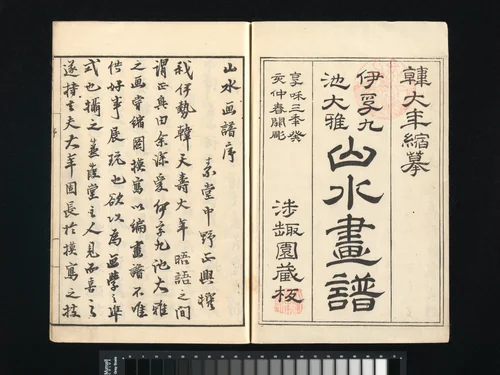 韓大年縮摹
伊孚九
池大雅
山水畫譜
享和三季癸
亥仲春開彫
涉趣園藏板
山水画譜序
素堂中野正興撰
我伊勢韓天壽大年晤語之間
謂正興曰余深愛伊孚九池大雅
之画嘗縮図摸寫以編畫譜不唯
供好事展玩也欲以為画學之楷
式也攝之
堂主人見而喜之
遂
夫大年固長於摸寫之技